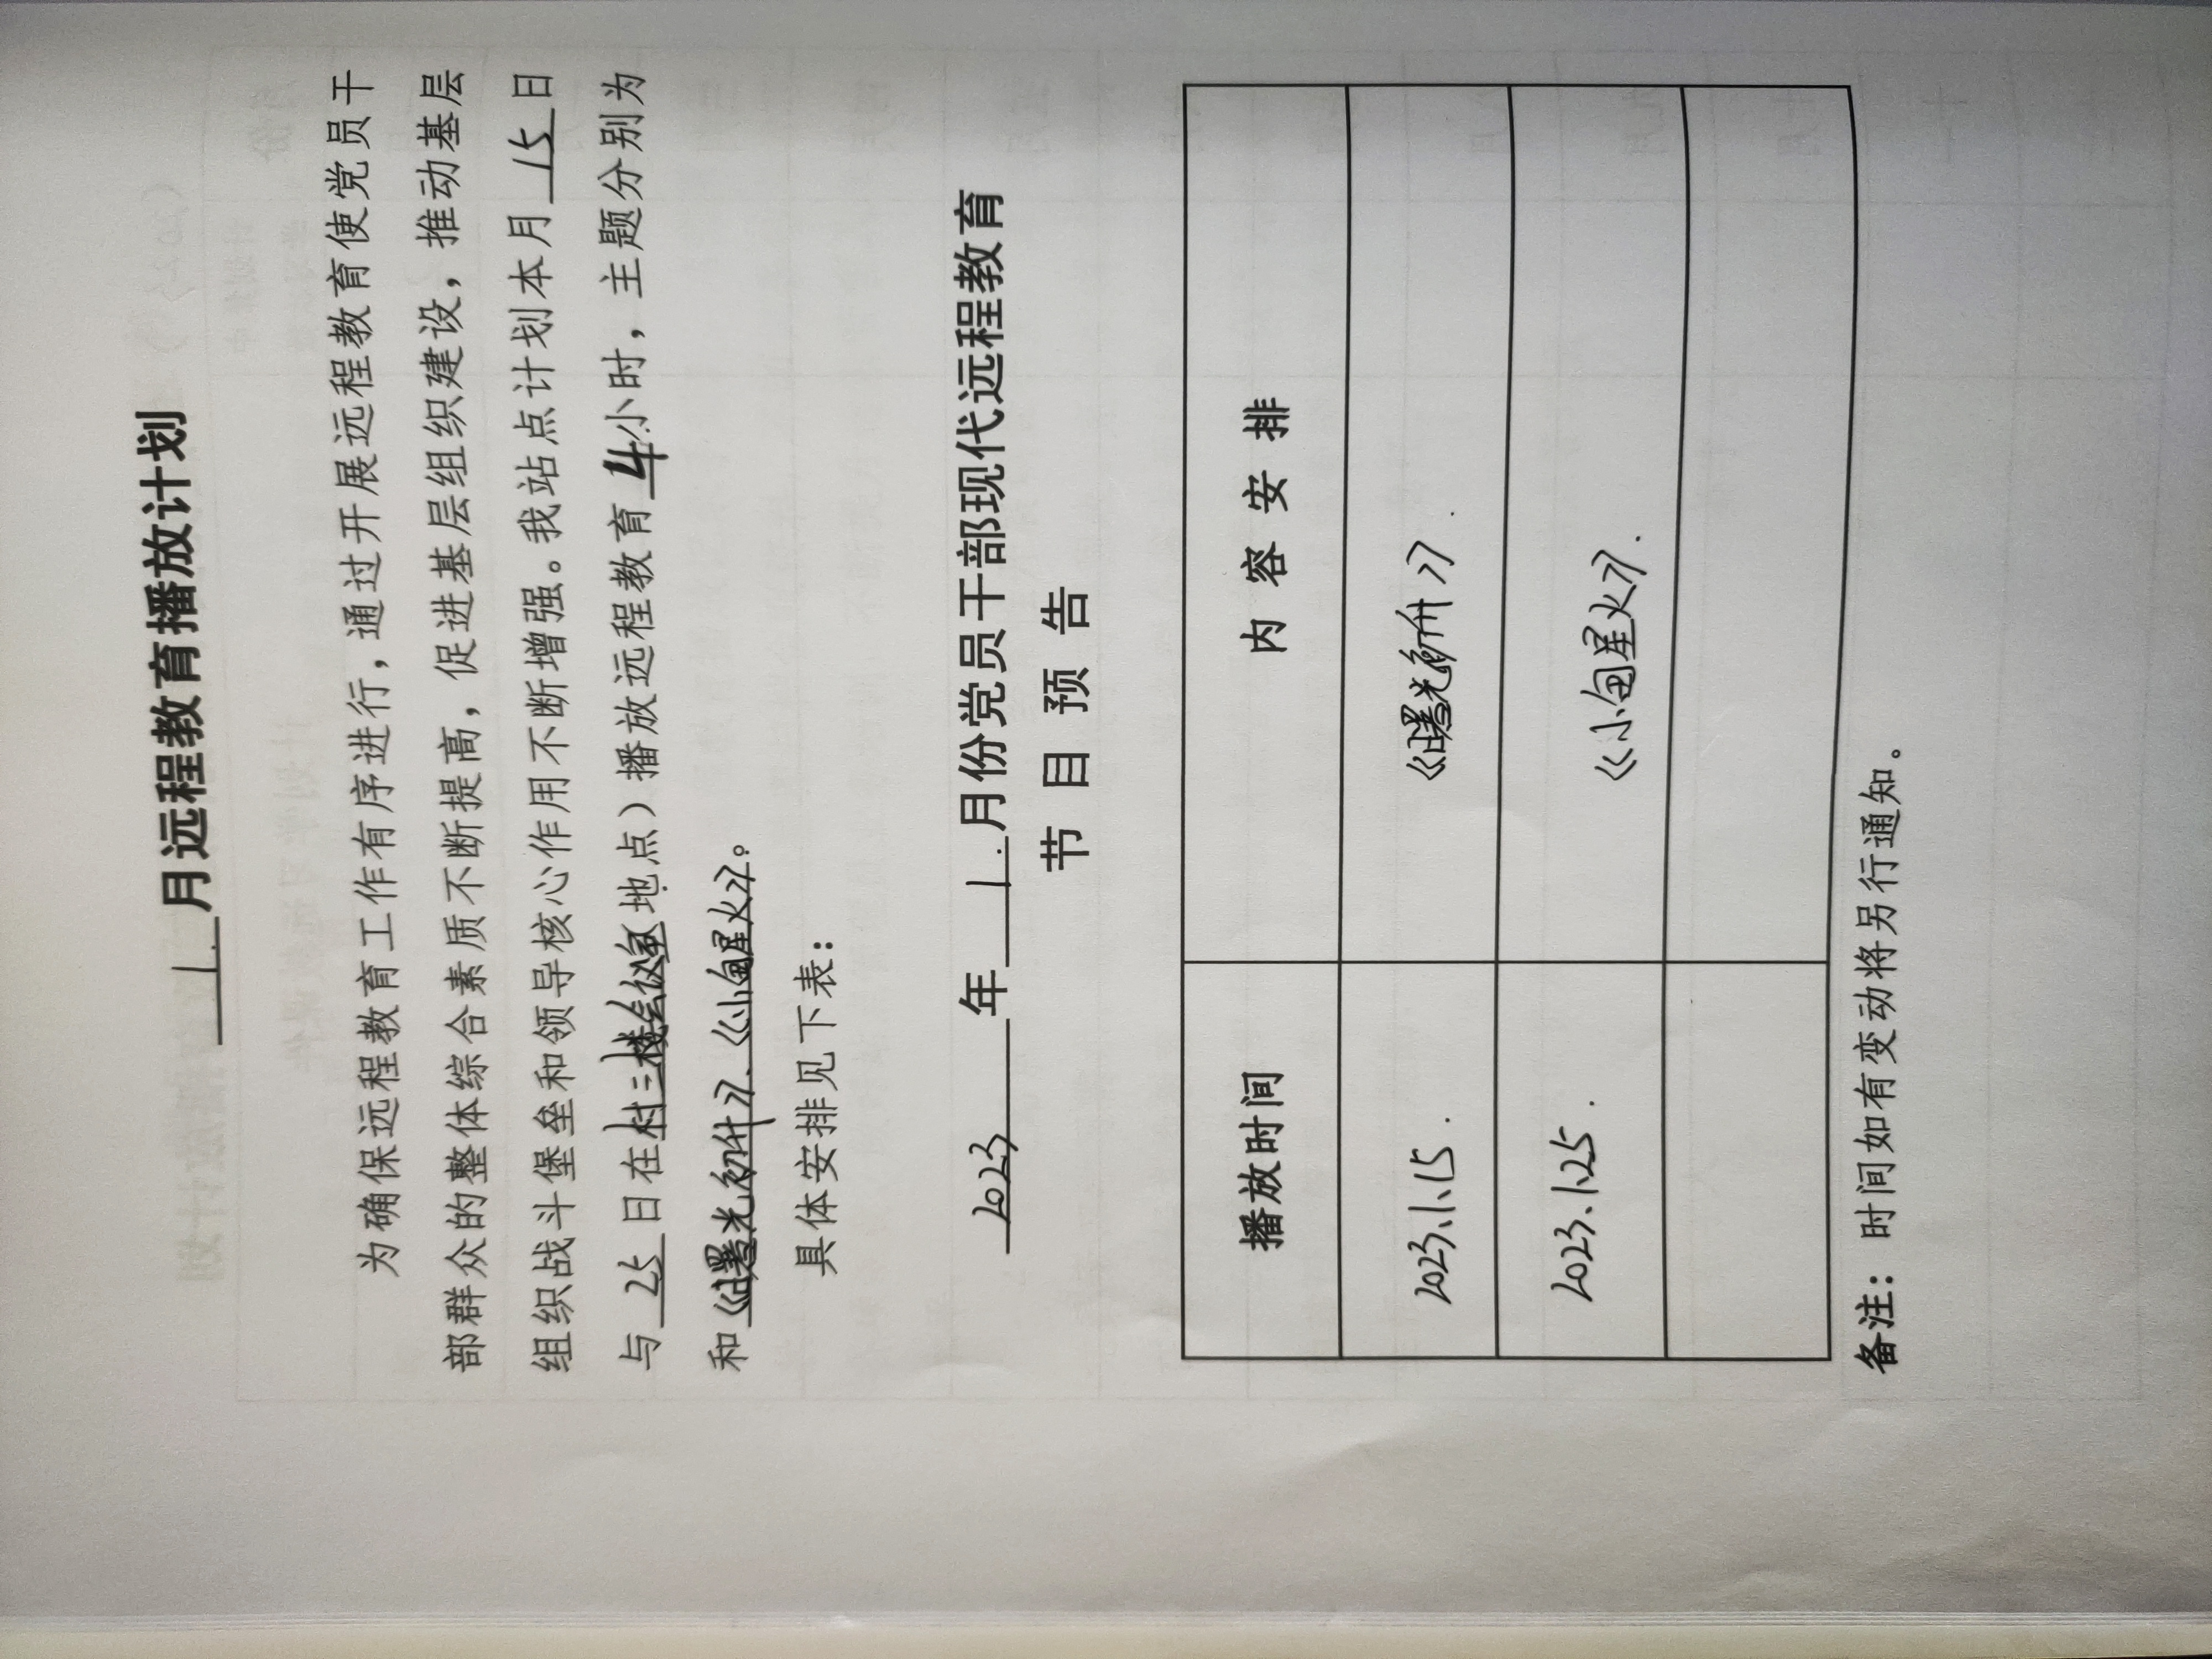 1.月远程教育播放计划
为确保远程教育工作有序进行，通过开展远程教育使党员干
部群众的整体综合素质不断提高，促进基层组织建设，推动基层
组织战斗堡垒和领导核心作用不断增强。我站点计划本月15日
与25日在村三楼会议室地点）播放远程教育4小时，主题分别为
和《曙光初升》、《小甸星火》。
具体安排见下表：
2023年1.月份党员干部现代远程教育
节目预告
播放时间 内容安排
2023.1.15. 《曙光初升》.
2023.1.25. 《小甸星火》.
备注：时间如有变动将另行通知。